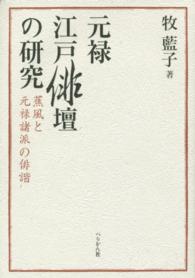 牧 藍子 著
元禄
江戸俳壇
の研究
蕉風と
元禄諸派の俳諧
ぺりかん社